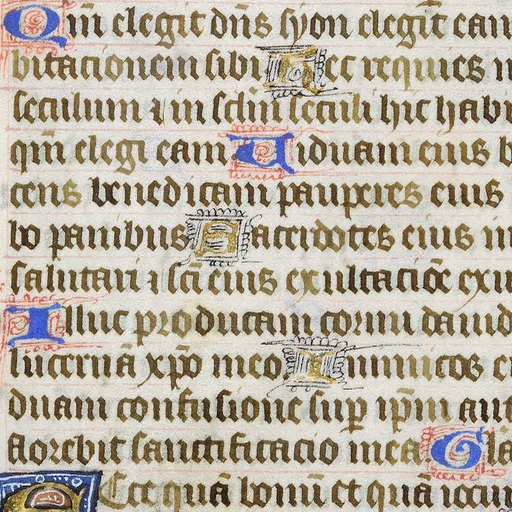 Qm̄ elegit dn̄s syon elegit eam
bitacionem sibi Hec requies
seculum ⁊ in sc̄lm seculi hic habi
qm̄ elegi eam Uiduam eius b
cens benedicam pauperes eius
bo panibus Sacerdotes eius in
salutari ⁊ sc̄i eius exultacioē exu
Illuc producam cornu dauid
lucernā xp̄o meo Inimicos e
duam confusione sup̄ ip̄m aut
florebit sanctificacio mea Gla
Ecce quā bonū et quā iocun